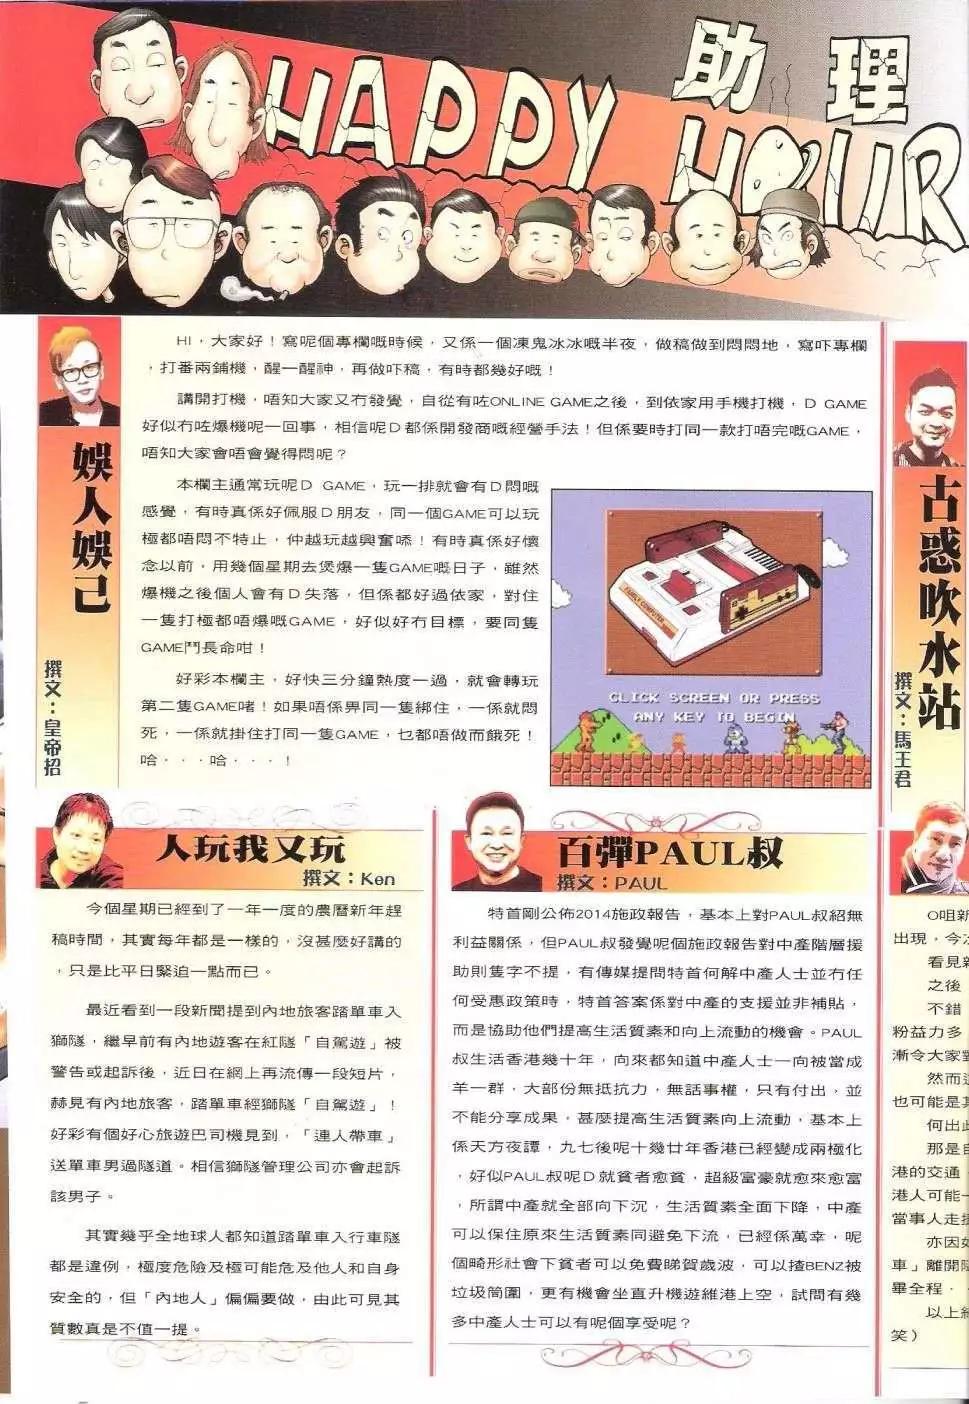 助理
HAPPY HOUR
娛人娛己
撰文：皇帝招
HI，大家好！寫呢個專欄嘅時候，又係一個凍鬼冰冰嘅半夜，做稿做到悶悶地，寫吓專欄
，打番兩鋪機，醒一醒神，再做吓稿，有時都幾好嘅！
講開打機，唔知大家又冇發覺，自從有咗ONLINE GAME之後，到依家用手機打機，D GAME
好似冇咗爆機呢一回事，相信呢D都係開發商嘅經營手法！但係要時打同一款打唔完嘅GAME，
唔知大家會唔會覺得悶呢？
本欄主通常玩呢D GAME，玩一排就會有D悶嘅
感覺，有時真係好佩服D朋友，同一個GAME可以玩
極都唔悶不特止，仲越玩越興奮㖭！有時真係好懷
念以前，用幾個星期去煲爆一隻GAME嘅日子，雖然
爆機之後個人會有D失落，但係都好過依家，對住
一隻打極都唔爆嘅GAME，好似好冇目標，要同隻
GAME鬥長命咁！
好彩本欄主，好快三分鐘熱度一過，就會轉玩
第二隻GAME啫！如果唔係畀同一隻綁住，一係就悶
死，一係就掛住打同一隻GAME，乜都唔做而餓死！
哈···哈···！
FAMILY COMPUTER
CLICK SCREEN OR PRESS
ANY KEY TO BEGIN
人玩我又玩
撰文：Ken
今個星期已經到了一年一度的農曆新年趕
稿時間，其實每年都是一樣的，沒甚麼好講的
，只是比平日緊迫一點而已。
最近看到一段新聞提到內地旅客踏單車入
獅隧，繼早前有內地遊客在紅隧「自駕遊」被
警告或起訴後，近日在網上再流傳一段短片，
赫見有內地旅客，踏單車經獅隧「自駕遊」！
好彩有個好心旅遊巴司機見到，「連人帶車」
送單車男過隧道。相信獅隧管理公司亦會起訴
該男子。
其實幾乎全地球人都知道踏單車入行車隧
都是違例，極度危險及極可能危及他人和自身
安全的，但「內地人」偏偏要做，由此可見其
質數真是不值一提。
百彈PAUL叔
撰文：PAUL
特首剛公佈2014施政報告，基本上對PAUL叔紹無
利益關係，但PAUL叔發覺呢個施政報告對中產階層援
助則隻字不提，有傳媒提問特首何解中產人士並冇任
何受惠政策時，特首答案係對中產的支援並非補貼，
而是協助他們提高生活質素和向上流動的機會。PAUL
叔生活香港幾十年，向來都知道中產人士一向被當成
羊一群，大部份無抵抗力，無話事權，只有付出，並
不能分享成果，甚麼提高生活質素向上流動，基本上
係天方夜譚，九七後呢十幾廿年香港已經變成兩極化
，好似PAUL叔呢D就貧者愈貧，超級富豪就愈來愈富
，所謂中產就全部向下沉，生活質素全面下降，中產
可以保住原來生活質素同避免下流，已經係萬幸，呢
個畸形社會下貧者可以免費睇賀歲波，可以揸BENZ被
垃圾筒圍，更有機會坐直升機遊維港上空，試問有幾
多中產人士可以有呢個享受呢？
古惑吹水站
撰文：馬王君
O咀新
出現，今次
看見新
之後
不錯
粉益力多
漸令大家對
然而這
也可能是其
何出此
那是自
港的交通
港人可能一
當事人走捷
亦因如
車」離開隧
畢全程．
以上純
笑）